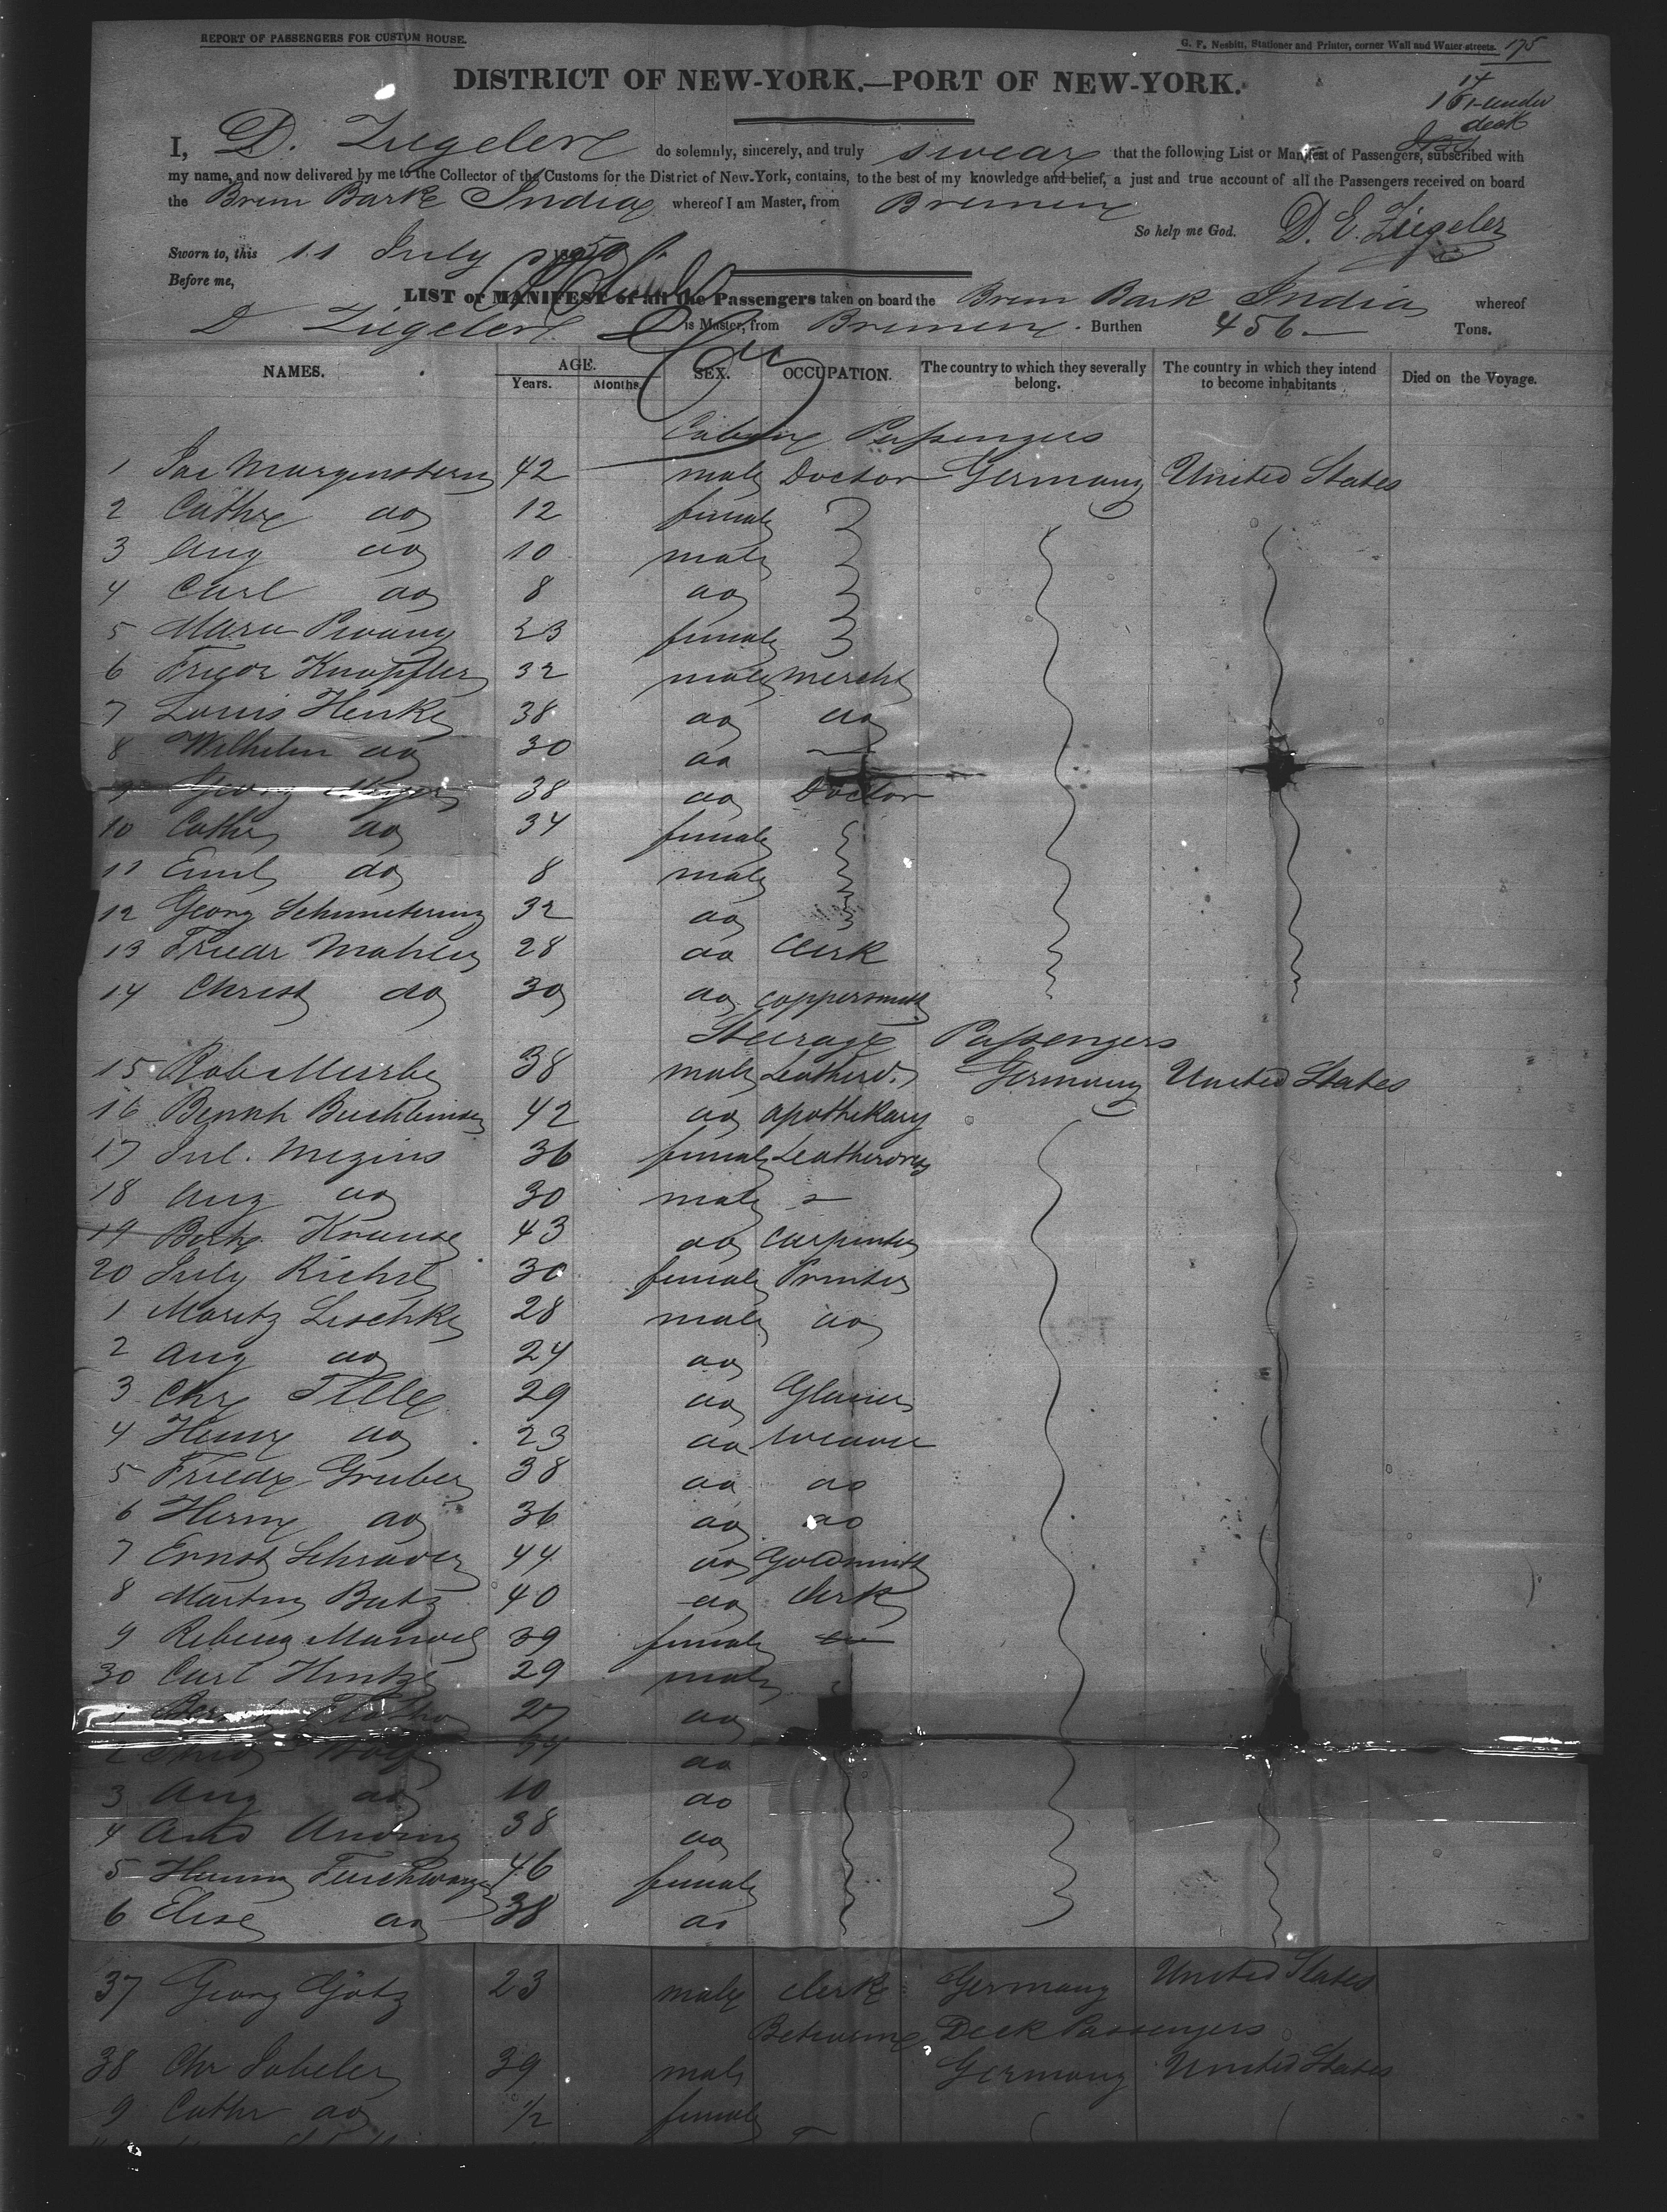 REPORT OF PASSENGERS FOR CUSTOM HOUSE.
G. F. Nesbitt, Stationer and Printer, corner Wall and Water streets. 175
DISTRICT OF NEW-YORK.—PORT OF NEW-YORK.
under deck
I, D. Ziegeler do solemnly, sincerely, and truly swear that the following List or Manifest of Passengers, subscribed with
my name, and now delivered by me to the Collector of the Customs for the District of New-York, contains, to the best of my knowledge and belief, a just and true account of all the Passengers received on board
the Brem Barke India whereof I am Master, from Bremen
So help me God. D. E. Ziegeler
Sworn to, this 11 July 1850
Before me,
LIST or MANIFEST of all the Passengers taken on board the Brem Bark India whereof
D Ziegeler is Master, from Bremen Burthen 456 Tons.
NAMES. AGE. Years. Months. SEX. OCCUPATION. The country to which they severally belong. The country in which they intend to become inhabitants Died on the Voyage.
Cabin Passengers
1 Jac Morgenstern 42 male Doctor Germany United States
2 Cathr do 12 female
3 Aug do 10 male
4 Carl do 8 do
5 Maria 23 female
6 Knopfler 32 male Mercht
7 Louis Henke 38 do do
8 Wilhelm do 30 do
9 Georg Meyer 38 do Doctor
10 Cathr do 34 female
11 Emil do 8 male
12 Georg 32 do
13 Friedr Mahler 28 do Clerk
14 Christ do 30 do coppersmith
Steerage Passengers
15 Rob 38 male Leatherd. Germany United States
16 42 do apothekary
17 Jul. Mezius 36 female Leatherdres
18 Aug do 30 male
19 Krause 43 do Carpenter
20 July 30 female Printer
1 Moritz Lischke 28 male do
2 Aug do 24 do
3 Chr Tille 29 do Glazier
4 Henry do 23 do Weaver
5 Friedr Gruber 38 do do
6 Herm do 36 do do
7 Ernst Schrader 44 do Goldsmith
8 Martin Butz 40 do Clerk
9 39 female
30 Carl Hintze 29 male
27 do
do
3 Aug do 10 do
4 38 do
5 46 female
6 Elise do 38 do
37 Georg Götz 23 male Clerk Germany United States
Between Deck Passengers
38 Chr 39 male Germany United States
9 Cathr do 1/2 female